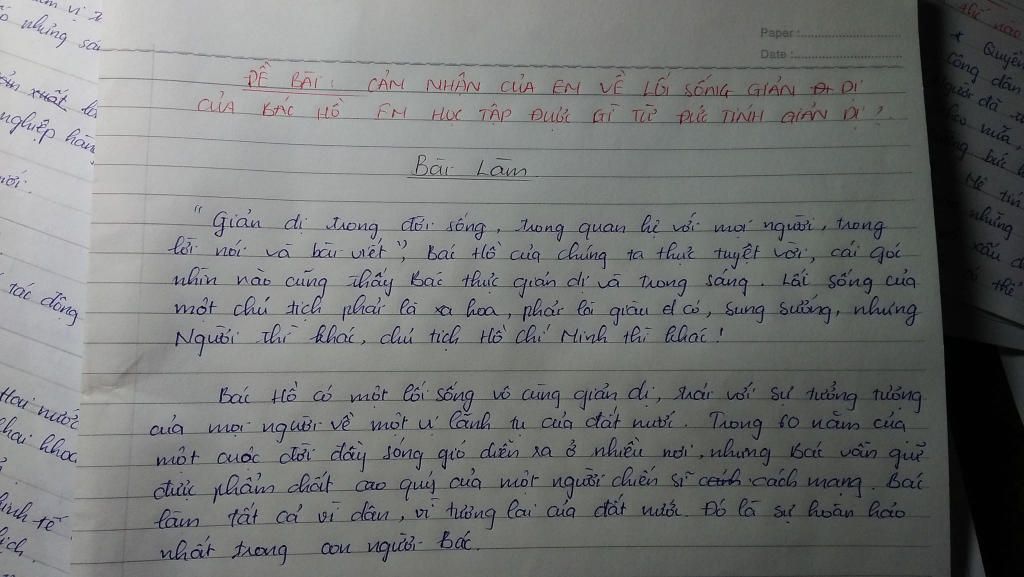 Paper :
Date :
ĐỀ BÀI : CẢM NHẬN CỦA EM VỀ LỐI SỐNG GIẢN DỊ
CỦA BÁC HỒ EM HỌC TẬP ĐƯỢC GÌ TỪ ĐỨC TÍNH GIẢN DỊ ?
Bài Làm
"Giản dị trong đời sống, trong quan hệ với mọi người, trong
lời nói và bài viết", Bác Hồ của chúng ta thực tuyệt vời, cái góc
nhìn nào cũng thấy Bác thực giản dị và trong sáng. Lối sống của
một chủ tịch phải là xa hoa, phải là giàu có, sung sướng, nhưng
Người thì khác, chủ tịch Hồ Chí Minh thì khác!
Bác Hồ có một lối sống vô cùng giản dị, trái với sự tưởng tượng
của mọi người về một vị lãnh tụ của đất nước. Trong 60 năm của
một cuộc đời đầy sóng gió diễn ra ở nhiều nơi, nhưng Bác vẫn giữ
được phẩm chất cao quý của một người chiến sĩ cách mạng. Bác
làm tất cả vì dân, vì tương lai của đất nước. Đó là sự hoàn hảo
nhất trong con người Bác.
những
xuất
nghiệp
tác động
Hai nước
khai
kinh tế
Quyền
công dân
người đã
nữa,
những
xấu